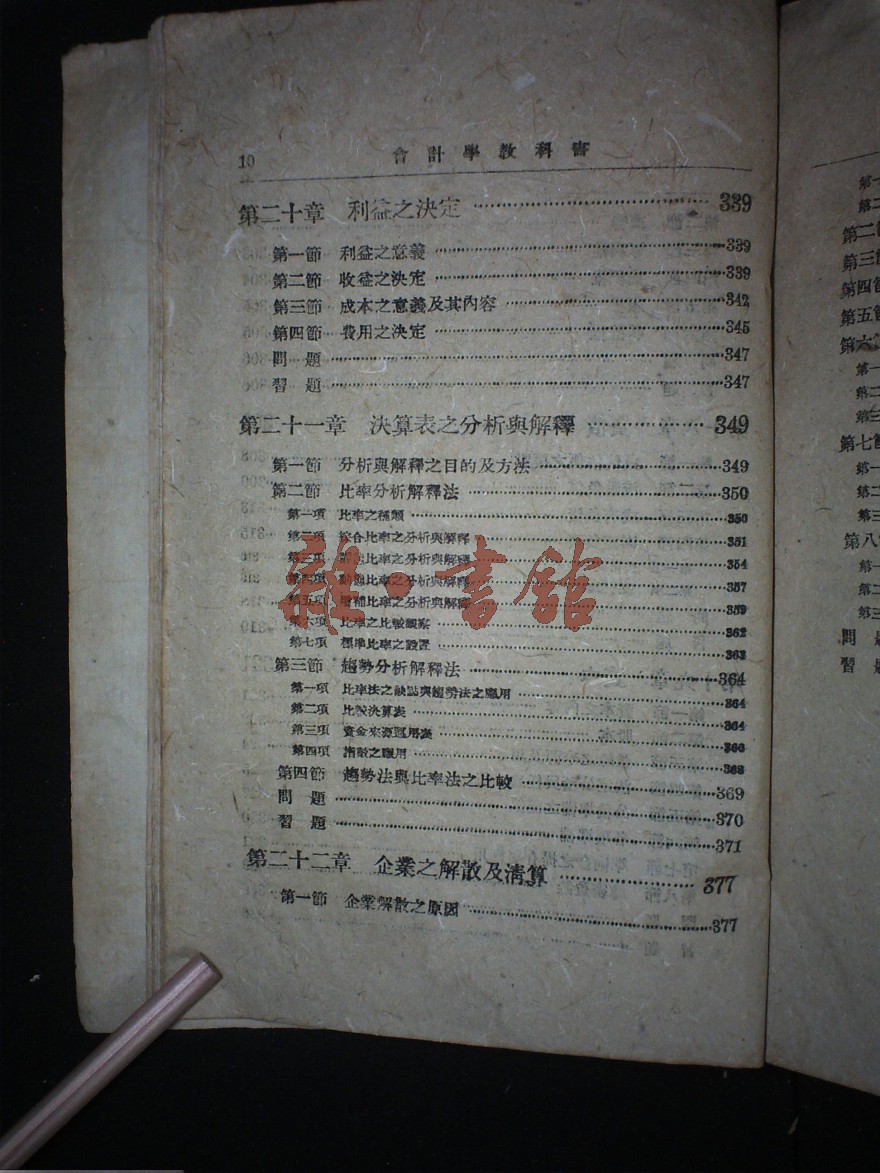 10 會計學教科書
第二十章 利益之決定 339
第一節 利益之意義 339
第二節 收益之決定 339
第三節 成本之意義及其內容 342
第四節 費用之決定 345
問題 347
習題 347
第二十一章 決算表之分析與解釋 349
第一節 分析與解釋之目的及方法 349
第二節 比率分析解釋法 350
第一項 比率之種類 350
第二項 綜合比率之分析與解釋 351
第三項 比率之分析與解釋 354
第四項 比率之分析與解釋 357
第五項 增補比率之分析與解釋 359
第六項 比率之比較觀察 362
第七項 標準比率之設置 363
第三節 趨勢分析解釋法 364
第一項 比率法之缺點與趨勢法之應用 364
第二項 比較決算表 364
第三項 資金來源運用表 366
第四項 指數之應用 368
第四節 趨勢法與比率法之比較 369
問題 370
習題 371
第二十二章 企業之解散及清算 377
第一節 企業解散之原因 377
雜·書館
第一
第二
第二節
第三節
第四節
第五節
第六
第一
第二
第三
第七節
第一
第二
第三
第八
第一
第二
第三
問
習